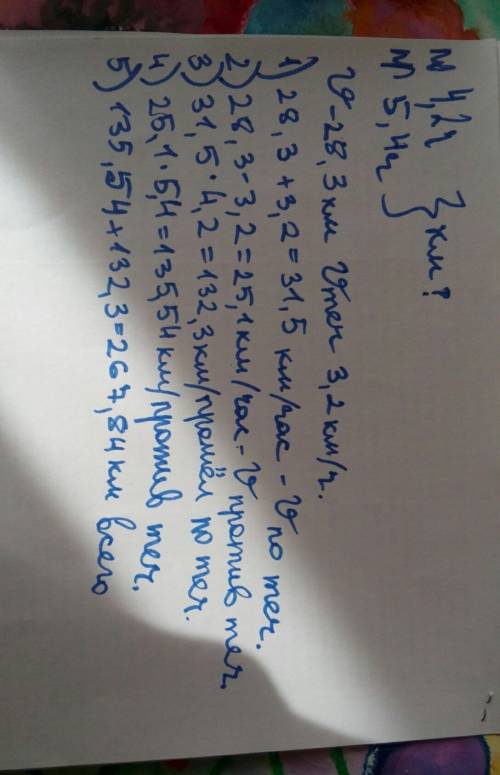 по 4,2ч } км?
пр 5,4ч
V - 28,3 км Vтеч 3,2 км/ч.
1) 28,3 + 3,2 = 31,5 км/час - V по теч.
2) 28,3 - 3,2 = 25,1 км/час - V против теч.
3) 31,5 · 4,2 = 132,3 км/прошёл по теч.
4) 25,1 · 5,4 = 135,54 км/против теч.
5) 135,54 + 132,3 = 267,84 км всего